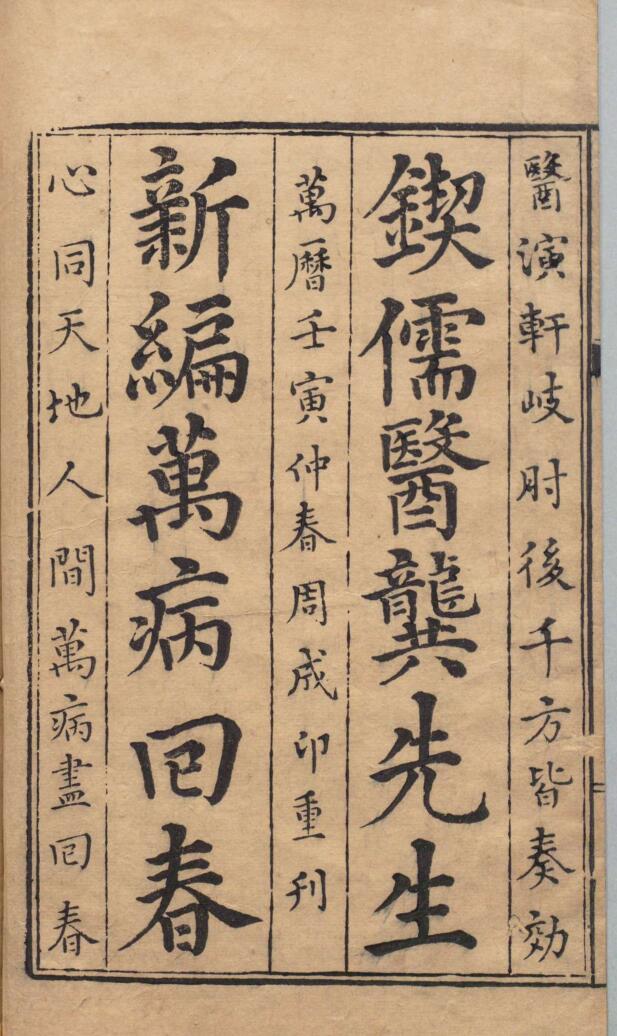 醫演軒岐肘後千方皆奏効
鍥儒醫龔先生
萬曆壬寅仲春周成卯重刋
新編萬病囘春
心同天地人間萬病盡囘春